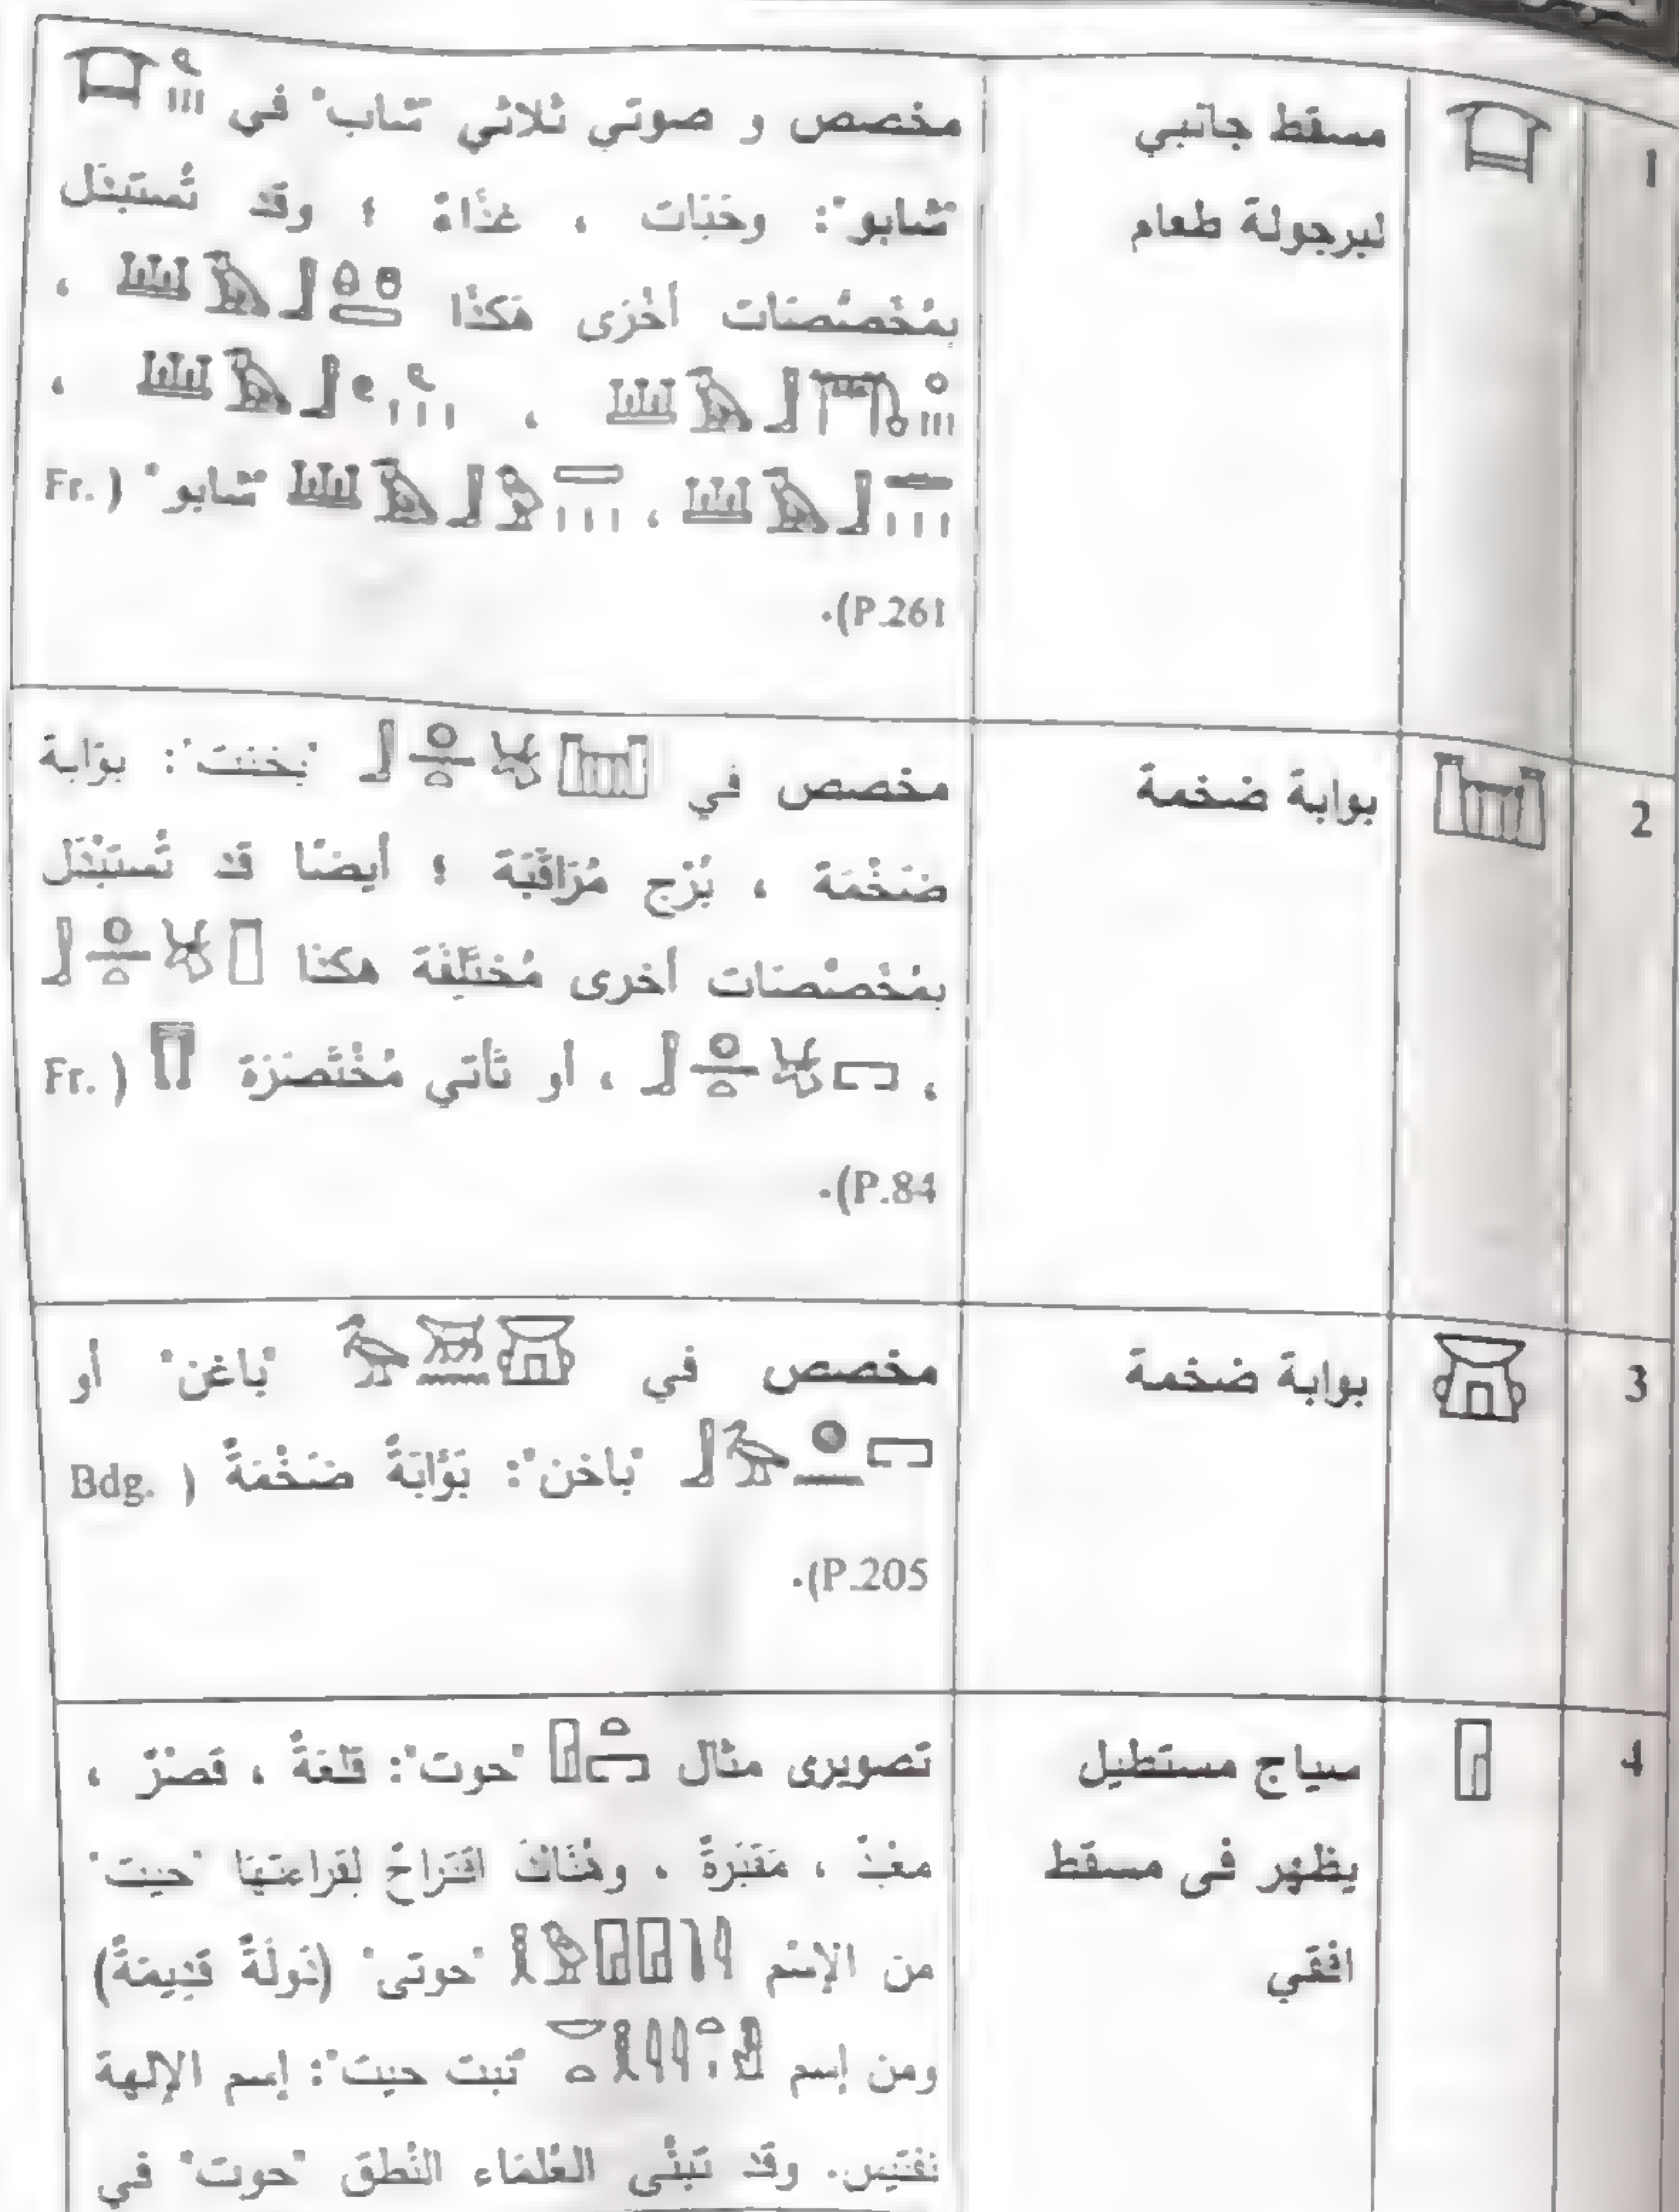 1
مسقط جانبي
لبرجولة طعام
مخصص و صوتي ثلاثي "شاب" في
"شابو": وجَبَات ، غذَاءَ ؛ وقد تُستَبدَل
بمُخَصصَات أخْرَى هَكذَا ،
، ،
، "شابو" ( Fr.
P.261).
2
بوابة ضخمة
مخصص في "بخنت": بوَابة
ضَخْمَة ، بُرْج مُرَاقَبَة ؛ أيضًا قَد تُستَبْدَل
بمُخَصصَات أخرى مُختَلِفَة هكذا
، ، أو تَأتي مُخْتَصَرَة ( Fr.
P.84).
3
بوابة ضخمة
مخصص في "باغن" أو
"باخن": بَوَّابَةً ضَخْمَةً ( Bdg.
P.205).
4
سياج مستطيل
يظهر فى مسقط
افقي
تصويرى مثال "حوت": قَلعَةً ، قَصْرٌ ،
معْبدٌ ، مَقبَرةً ، وهُنَاكَ اقتَراحٌ لقراءتهَا "حيت"
من الإسْم "حوتى" (دَولَةً قَدِيمَةً)
ومن إسم "نبت حيت": إسم الإلهة
نفتيس. وقد تَبنَّى العُلمَاء النُطق "حوت" في